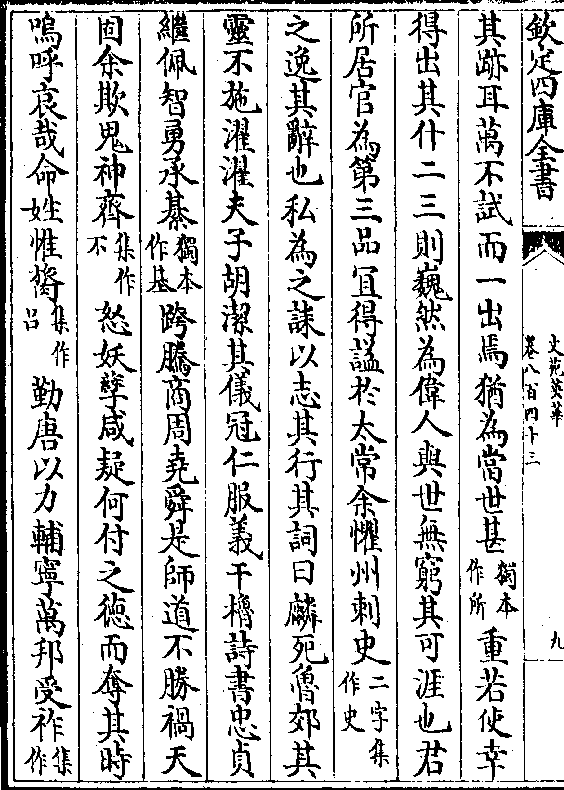 欽定四庫全書
文苑英華
卷八百四十三
九
其跡耳萬不試而一出焉猶為當世甚獨本作所重若使幸
得出其什二三則巍然為偉人與世無窮其可涯也君
所居官為第三品宜得諡於太常余懼州刺史二字集作史
之逸其辭也私為之誄以志其行其詞曰麟死魯郊其
靈不施濯濯夫子胡潔其儀冠仁服義干櫓詩書忠貞
繼佩智勇承綦獨本作基跨騰商周堯舜是師道不勝禍天
固余欺鬼神齊集作不怒妖孽咸疑何付之德而奪其時
嗚呼哀哉命姓惟集作呂勤唐以力輔寧萬邦受祚集作